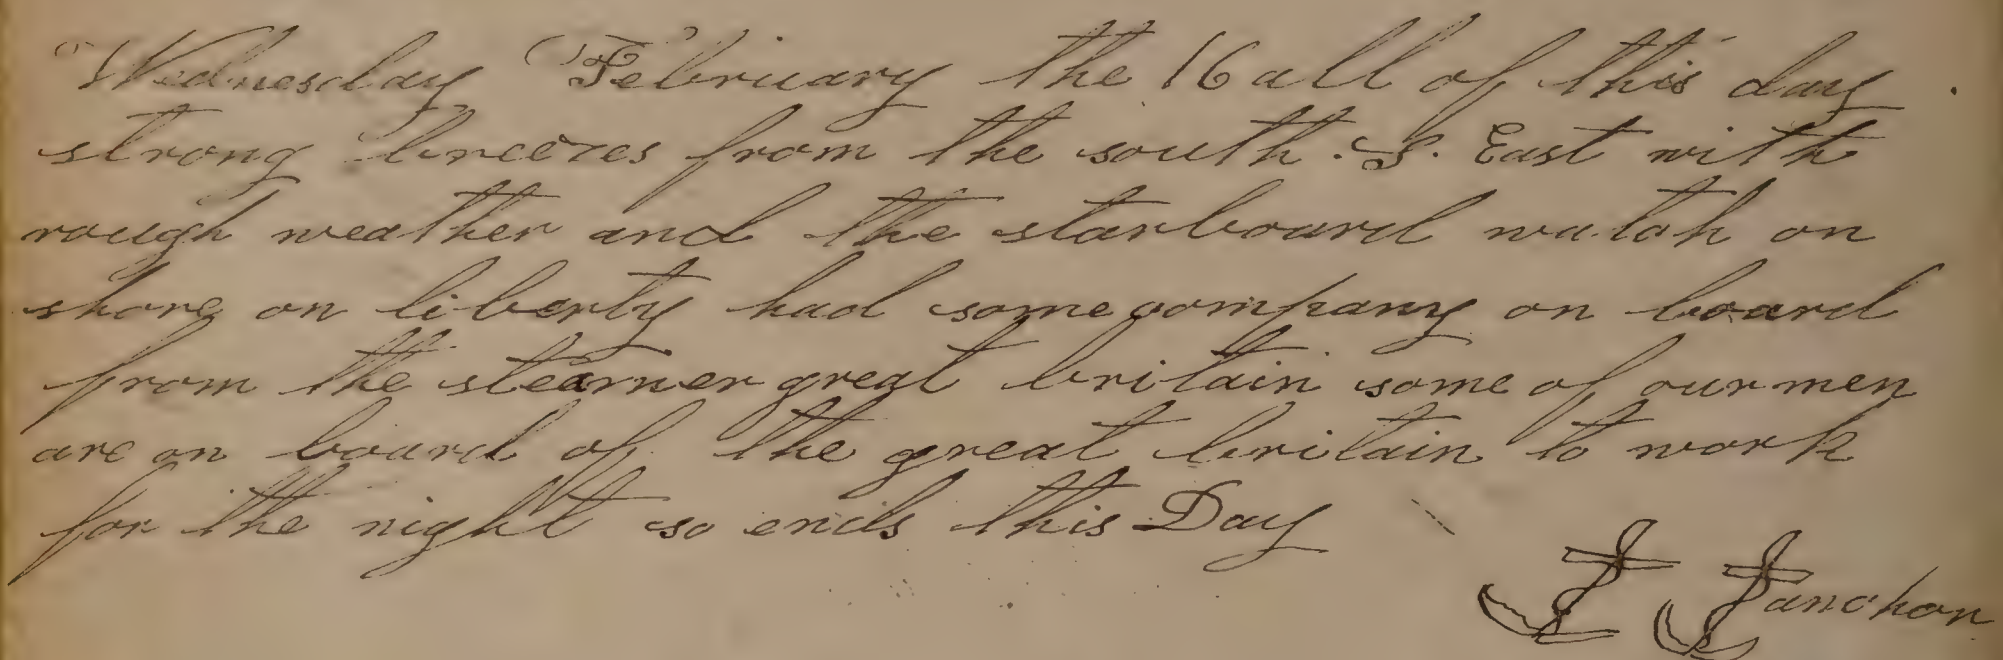 Wednesday February the 16 all of this day
strong breezes from the south. S. East with
rough weather and the starboard watch on
shore on liberty had some company on board
from the steamer great britain some of our men
are on board of the great britain to work
for the night so ends this Day
anchor